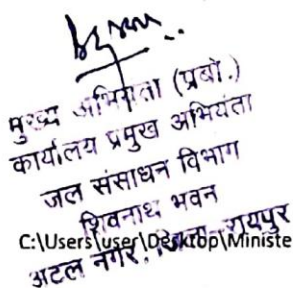 मुख्य अभियंता (प्रबो.)
कार्यालय प्रमुख अभियंता
जल संसाधन विभाग
शिवनाथ भवन
C:\Users\user\Desktop\Ministe
अटल नगर, रायपुर